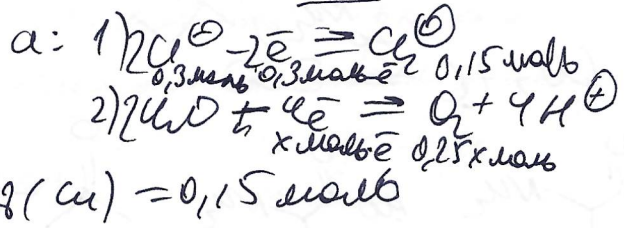 a: 1) 2Cl⊖ - 2ē = Cl₂⊖
0,3 моль 0,3 моль ē 0,15 моль
2) 2H₂O - 4ē = O₂ + 4H⊕
x моль ē 0,25x моль
(Cu) = 0,15 моль